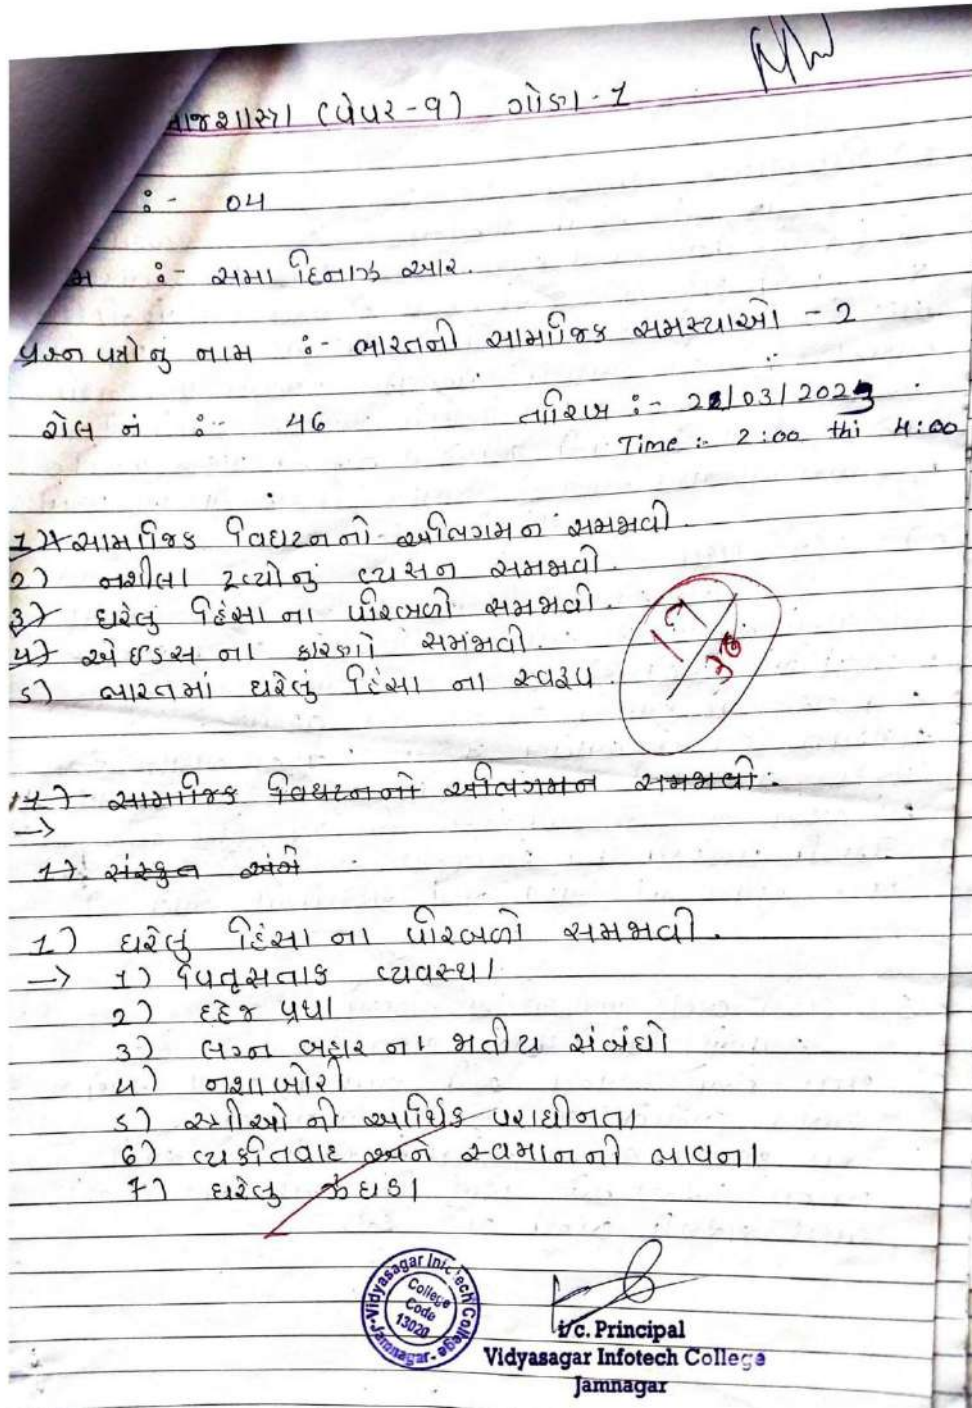 ાજશાસ્ત્ર (પેપર-૧) ગોણ-1
:- 04
મ :- સમા હિનાઝ આર.
પ્રશ્ન પત્રોનું નામ :- ભારતની સામાજિક સમસ્યાઓ - 2
રોલ નં :- 46 તારિખ :- 28/03/2023
Time :- 2:00 thi 4:00
1) સામાજિક વિઘટનનો અભિગમન સમજાવો
2) નશીલા દ્રવ્યોનું વ્યસન સમજાવો.
3) ઘરેલું હિંસા ના પરિબળો સમજાવો.
4) એઈડસ ના કારણો સમજાવો.
5) ભારતમાં ઘરેલું હિંસા ના સ્વરૂપ
17
30
1) સામાજિક વિઘટનનો અભિગમન સમજાવો.
->
1) સંસ્કૃત અંગે
1) ઘરેલું હિંસા ના પરિબળો સમજાવો.
-> 1) પિતૃસતાક વ્યવસ્થા
2) દહેજ પ્રથા
3) લગ્ન બહાર ના જાતીય સંબંધો
4) નશાખોરી
5) સ્ત્રીઓ ની આર્થિક પરાધીનતા
6) વ્યકીતવાદ અને સ્વમાનની ભાવના
7) ઘરેલું ઝઘડા
Vidyasagar Infotech College
College
Code
13020
Jamnagar
i/c. Principal
Vidyasagar Infotech College
Jamnagar